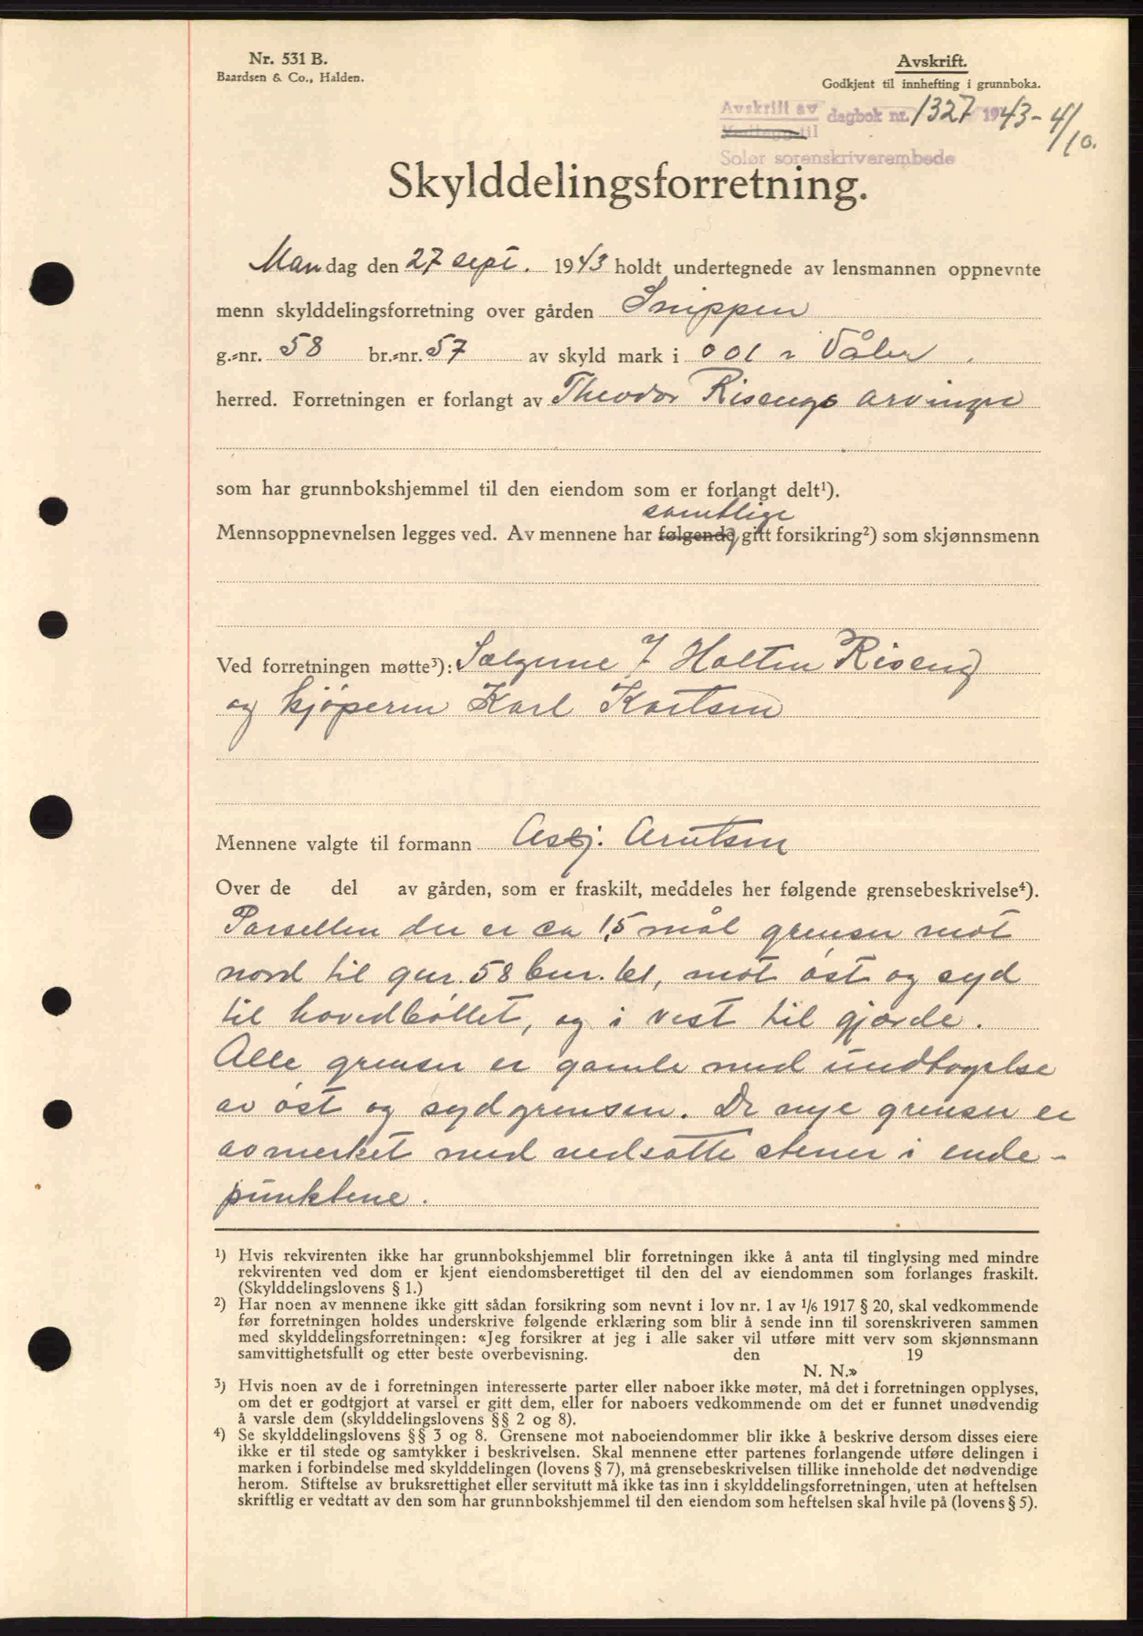 Nr. 531 B.
Baardsen & Co., Halden.
Avskrift.
Godkjent til innhefting i grunnboka.
Avskrift av dagbok nr. 1327 1943 - 4/10.
Vedlegg til
Solør sorenskriverembede
Skylddelingsforretning.
Mandag den 27 sept. 1943 holdt undertegnede av lensmannen oppnevnte
menn skylddelingsforretning over gården Snippen
g.-nr. 58 br.-nr. 57 av skyld mark i 0 01 i Våler .
herred. Forretningen er forlangt av Theodor Risengs arvinge
som har grunnbokshjemmel til den eiendom som er forlangt delt¹).
samtlige
Mennsoppnevnelsen legges ved. Av mennene har følgende gitt forsikring²) som skjønnsmenn
Ved forretningen møtte³): Selgerne J Holten Riseng
og kjøperen Karl Karlsen
Mennene valgte til formann Asbj. Arntsen
Over de del av gården, som er fraskilt, meddeles her følgende grensebeskrivelse⁴).
Parsellen der er ca 1,5 mål grenser mot
nord til gnr. 58 bnr. 61, mot øst og syd
til hovedbøllet, og i vest til gjerde.
Alle grenser er gamle med undtagelse
av øst og sydgrensen. De nye grenser er
avmerket med nedsatte stener i ende-
punktene.
¹) Hvis rekvirenten ikke har grunnbokshjemmel blir forretningen ikke å anta til tinglysing med mindre
rekvirenten ved dom er kjent eiendomsberettiget til den del av eiendommen som forlanges fraskilt.
(Skylddelingslovens § 1.)
²) Har noen av mennene ikke gitt sådan forsikring som nevnt i lov nr. 1 av 1/6 1917 § 20, skal vedkommende
før forretningen holdes underskrive følgende erklæring som blir å sende inn til sorenskriveren sammen
med skylddelingsforretningen: «Jeg forsikrer at jeg i alle saker vil utføre mitt verv som skjønnsmann
samvittighetsfullt og etter beste overbevisning. den 19
N. N.»
³) Hvis noen av de i forretningen interesserte parter eller naboer ikke møter, må det i forretningen opplyses,
om det er godtgjort at varsel er gitt dem, eller for naboers vedkommende om det er funnet unødvendig
å varsle dem (skylddelingslovens §§ 2 og 8).
⁴) Se skylddelingslovens §§ 3 og 8. Grensene mot naboeiendommer blir ikke å beskrive dersom disses eiere
ikke er til stede og samtykker i beskrivelsen. Skal mennene etter partenes forlangende utføre delingen i
marken i forbindelse med skylddelingen (lovens § 7), må grensebeskrivelsen tillike inneholde det nødvendige
herom. Stiftelse av bruksrettighet eller servitutt må ikke tas inn i skylddelingsforretningen, uten at heftelsen
skriftlig er vedtatt av den som har grunnbokshjemmel til den eiendom som heftelsen skal hvile på (lovens § 5).